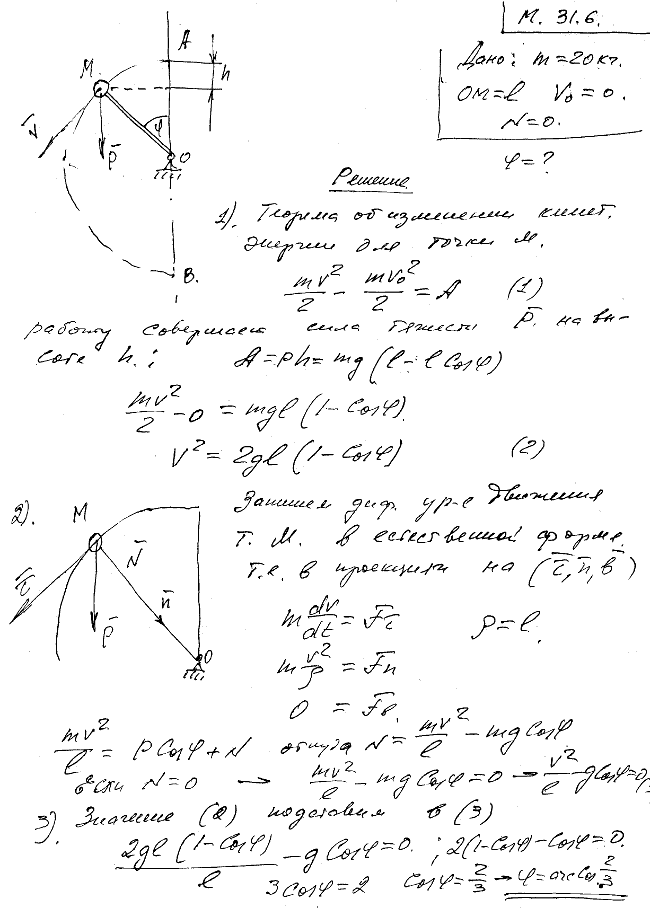 М. 31.6.
Дано: m=20кг.
OM=l V₀=0.
N=0.
φ=?
A
M.
h
φ
V̄
P̄
O
B.
Решение
1). Теорема об изменении кинет.
энергии для точки М.
mv²/2 - mv₀²/2 = A (1)
работу совершает сила тяжести P̄. на вы-
соте h.: A=Ph=mg(l-lCosφ)
mv²/2 - 0 = mgl(1-Cosφ).
V²=2gl(1-Cosφ) (2)
2).
M
N̄
τ̄
n̄
P̄
O
Запишем диф. ур-е движения
т. М. в естественной форме.
т.е. в проекциях на (τ̄, n̄, b̄)
m dv/dt = Fτ ρ=l.
m v²/ρ = Fn
0 = Fв.
mv²/l = PCosφ+N откуда N= mv²/l - mgCosφ
Если N=0 → mv²/l - mgCosφ=0 → v²/l - gCosφ=0
3) Значение (2) подставим в (3)
2gl(1-Cosφ)/l - gCosφ=0. ; 2(1-Cosφ)-Cosφ=0.
3Cosφ=2 Cosφ=2/3 → φ=arcCos 2/3